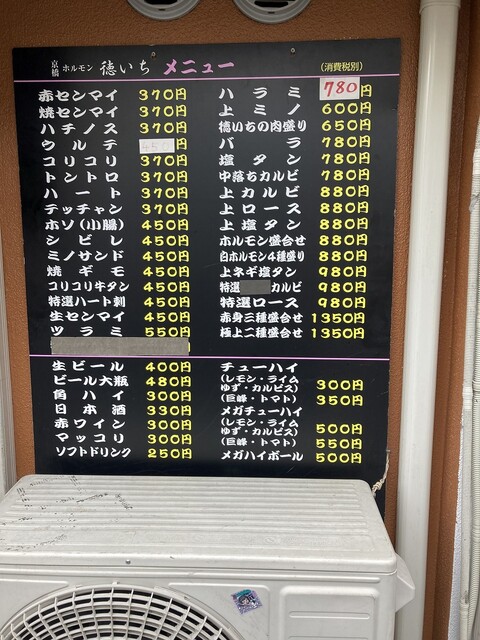 京橋 ホルモン 徳いち メニュー (消費税別)
赤センマイ 370円
焼センマイ 370円
ハチノス 370円
ウルテ 450円
コリコリ 370円
トントロ 370円
ハート 370円
テッチャン 370円
ホソ(小腸) 450円
シビレ 450円
ミノサンド 450円
焼ギモ 450円
コリコリ牛タン 450円
特選ハート刺 450円
生センマイ 450円
ツラミ 550円
ハラミ 780円
上ミノ 600円
徳いちの肉盛り 650円
バラ 780円
塩タン 780円
中落ちカルビ 780円
上カルビ 880円
上ロース 880円
上塩タン 880円
ホルモン盛合せ 880円
白ホルモン4種盛り 880円
上ネギ塩タン 980円
特選 カルビ 980円
特選ロース 980円
赤身三種盛合せ 1350円
極上二種盛合せ 1350円
生ビール 400円
ビール大瓶 480円
角ハイ 300円
日本酒 330円
赤ワイン 300円
マッコリ 300円
ソフトドリンク 250円
チューハイ
(レモン・ライム
ゆず・カルピス) 300円
(巨峰・トマト) 350円
メガチューハイ
(レモン・ライム
ゆず・カルピス) 500円
(巨峰・トマト) 550円
メガハイボール 500円